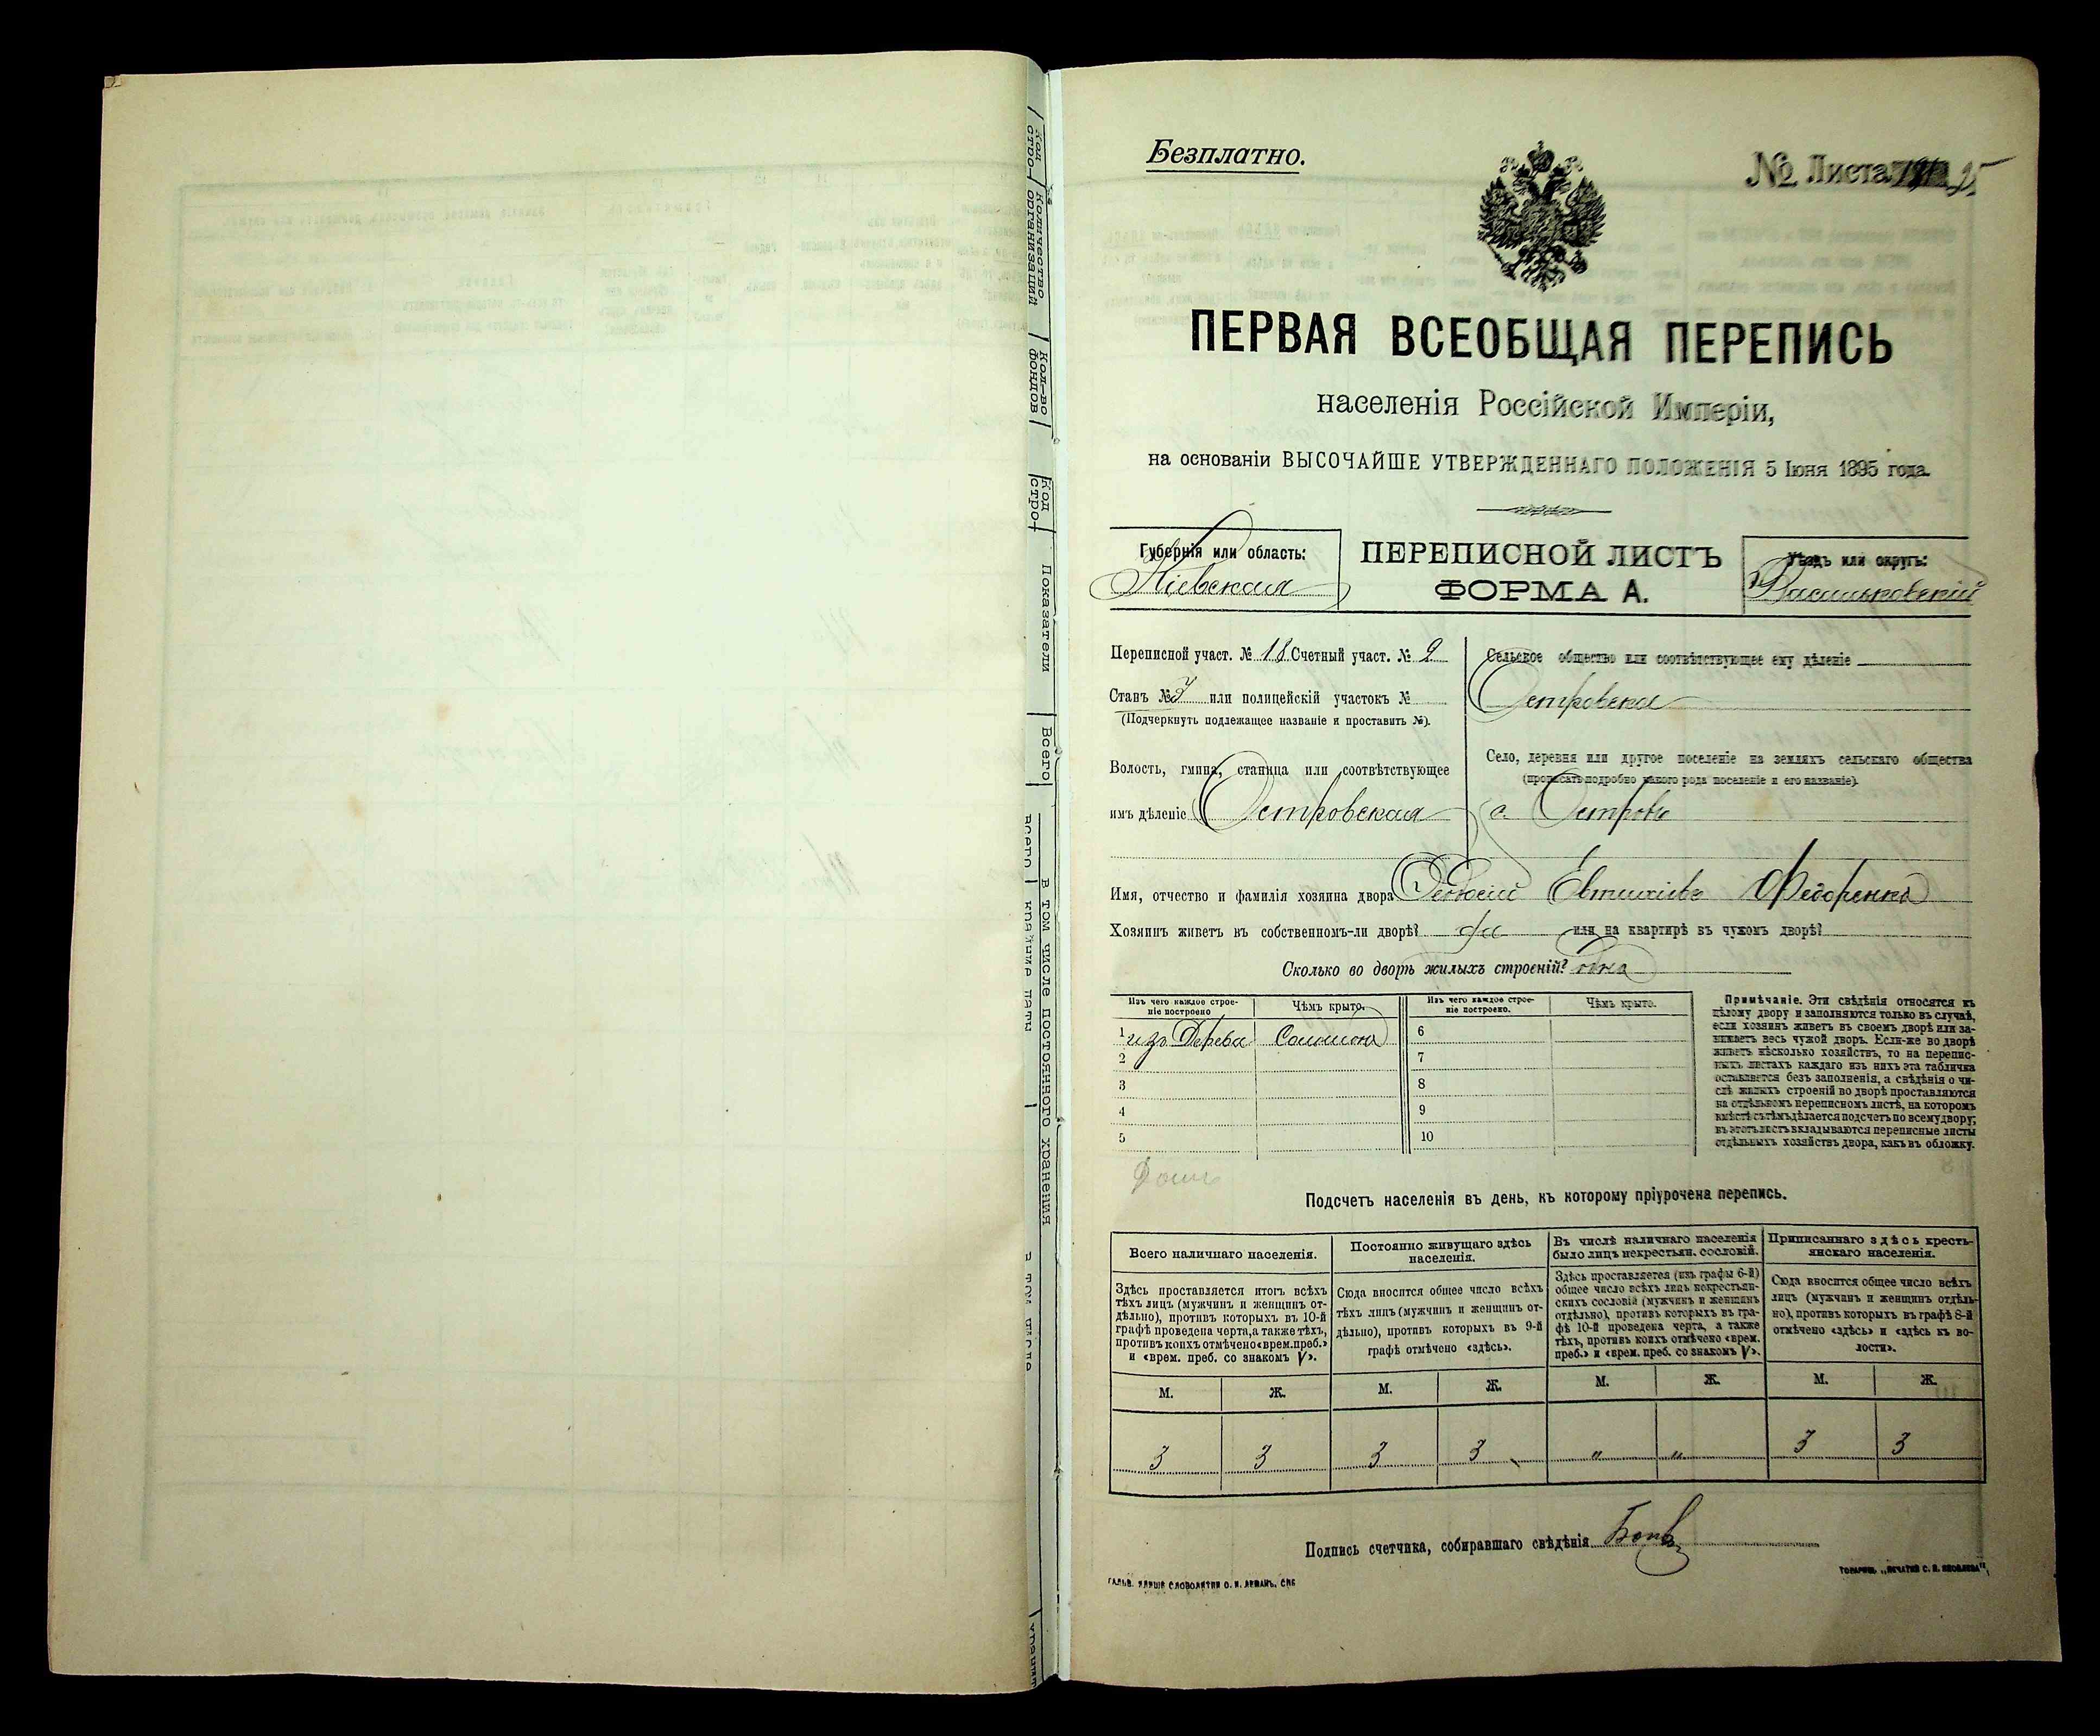 Безплатно.
№ Листа
ПЕРВАЯ ВСЕОБЩАЯ ПЕРЕПИСЬ
населенія Россійской Имперіи,
на основаніи ВЫСОЧАЙШЕ УТВЕРЖДЕННАГО ПОЛОЖЕНІЯ 5 Іюня 1895 года.
Губернія или область:
Кіевская
ПЕРЕПИСНОЙ ЛИСТЪ
ФОРМА А.
Уѣздъ или округъ:
Васильковскій
Переписной участ. № 18 Счетный участ. № 2
Станъ № 3 или полицейскій участокъ №
(Подчеркнуть подлежащее названіе и проставить №).
Волость, гмина, станица или соотвѣтствующее
имъ дѣленіе Островская
Сельское общество или соотвѣтствующее ему дѣленіе
Островское
Село, деревня или другое поселеніе на земляхъ сельскаго общества
(прописать подробно какого рода поселеніе и его названіе).
с. Островъ
Имя, отчество и фамилія хозяина двора Феодосій Евтихіевъ Федоренко
Хозяинъ живетъ въ собственномъ-ли дворѣ? да или на квартирѣ въ чужомъ дворѣ?
Сколько во дворѣ жилыхъ строеній? одна
Изъ чего каждое строеніе построено
Чѣмъ крыто.
Изъ чего каждое строеніе построено.
Чѣмъ крыто.
1 изъ Дерева Соломою 6
2 7
3 8
4 9
5 10
Примѣчаніе. Эти свѣдѣнія относятся къ
цѣлому двору и заполняются только въ случаѣ,
если хозяинъ живетъ въ своемъ дворѣ или за-
нимаетъ весь чужой дворъ. Если-же во дворѣ
живетъ нѣсколько хозяйствъ, то на перепис-
ныхъ листахъ каждаго изъ нихъ эта табличка
оставляется безъ заполненія, а свѣдѣнія о чи-
слѣ жилыхъ строеній во дворѣ проставляются
на отдѣльномъ переписномъ листѣ, на которомъ
вмѣстѣ съ тѣмъ дѣлается подсчетъ по всему двору;
въ этотъ листъ вкладываются переписные листы
отдѣльныхъ хозяйствъ двора, какъ въ обложку.
Подсчетъ населенія въ день, къ которому пріурочена перепись.
Всего наличнаго населенія.
Здѣсь проставляется итогъ всѣхъ
тѣхъ лицъ (мужчинъ и женщинъ от-
дѣльно), противъ которыхъ въ 10-й
графѣ проведена черта, а также тѣхъ,
противъ коихъ отмѣчено «врем. преб.»
и «врем. преб. со знакомъ V».
Постоянно живущаго здѣсь
населенія.
Сюда вносится общее число всѣхъ
тѣхъ лицъ (мужчинъ и женщинъ от-
дѣльно), противъ которыхъ въ 9-й
графѣ отмѣчено «здѣсь».
Въ числѣ наличнаго населенія
было лицъ некрестьян. сословій.
Здѣсь проставляется (изъ графы 6-й)
общее число всѣхъ лицъ некрестьян-
скихъ сословій (мужчинъ и женщинъ
отдѣльно), противъ которыхъ въ гра-
фѣ 10-й проведена черта, а также
тѣхъ, противъ коихъ отмѣчено «врем.
преб.» и «врем. преб. со знакомъ V».
Приписаннаго здѣсь кресть-
янскаго населенія.
Сюда вносится общее число всѣхъ
лицъ (мужчинъ и женщинъ отдѣль-
но), противъ которыхъ въ графѣ 8-й
отмѣчено «здѣсь» и «здѣсь къ во-
лости».
М. Ж. М. Ж. М. Ж. М. Ж.
3 3 3 3 " " 3 3
Подпись счетчика, собиравшаго свѣдѣнія
ТОВАРИЩ. „ПЕЧАТНЯ С. П. ЯКОВЛЕВА“
Код
стро-
Количество
организаций
Кол-во
фондов
Код
стро-
Показатели
Всего
в том числе постоянного хранения
всего
крайние даты